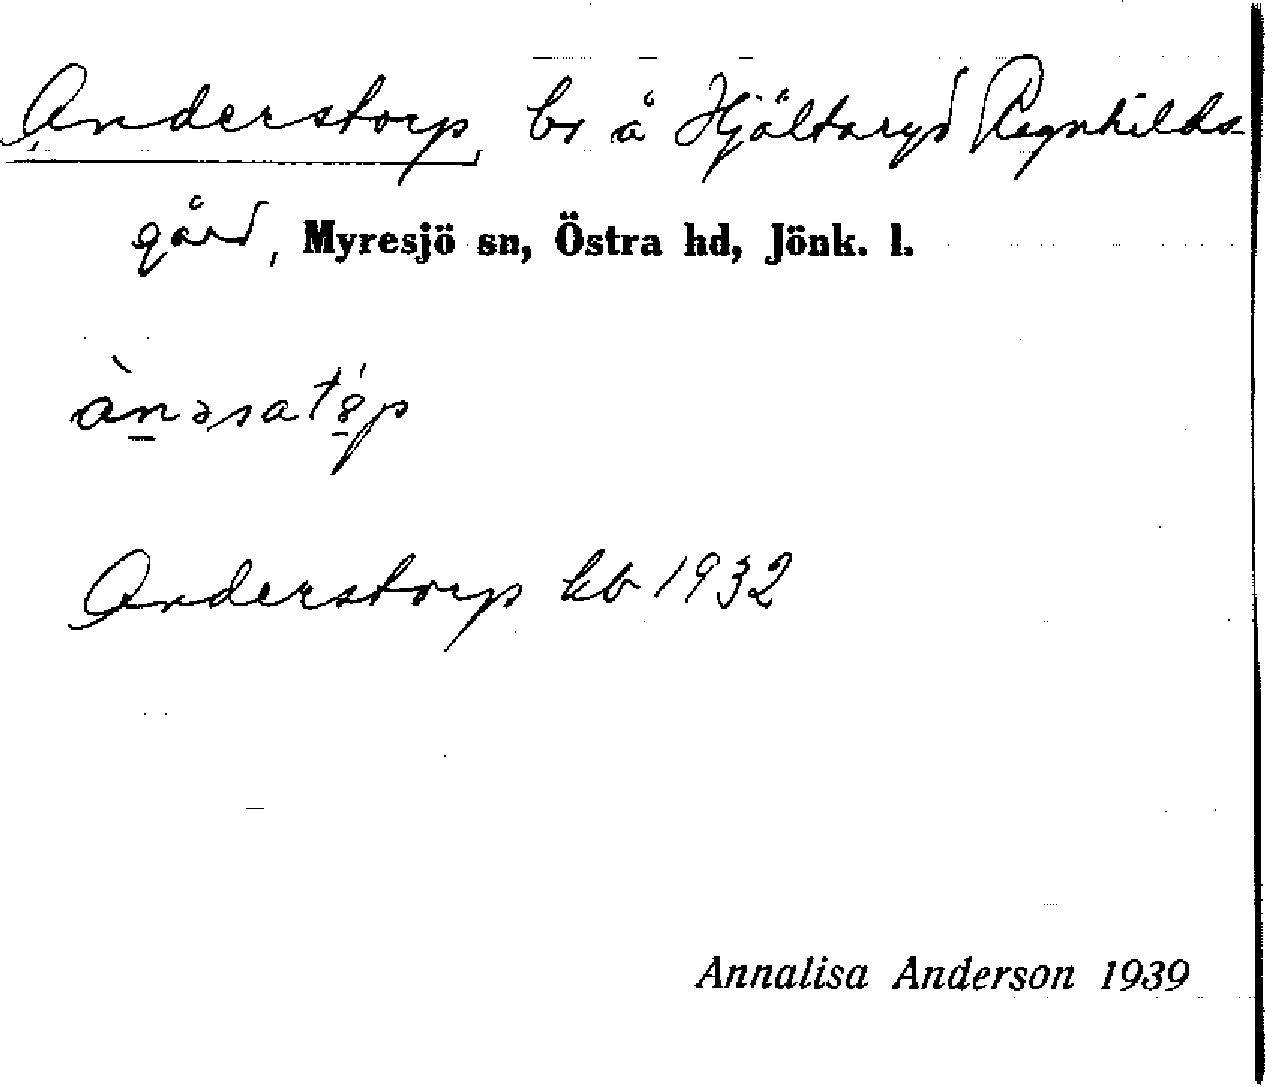 Anderstorp, bs å Hjältaryd Ragnhilds-
gård, Myresjö sn, Östra hd, Jönk. l.
Anderstorp kb 1932
Annalisa Anderson 1939